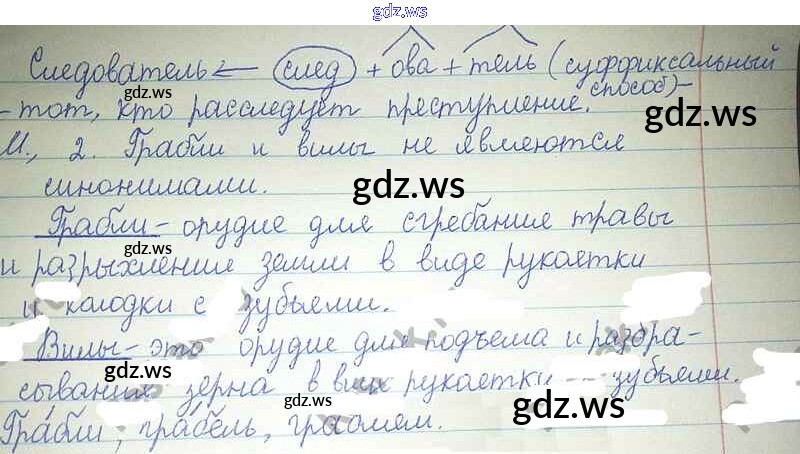 gdz.ws
Следователь ← след + ова + тель (суффиксальный
способ) -
- тот, кто расследует преступление.
gdz.ws
gdz.ws
2. Грабли и вилы не являются
синонимами.
gdz.ws
Грабли - орудие для сгребания травы
gdz.ws
и разрыхления земли в виде рукоятки
и колодки с зубьями.
Вилы - это орудие для подъема и разбра-
gdz.ws
сывания зерна в виде рукоятки зубьями.
gdz.ws
gdz.ws
Гра́бли, гра́бель,